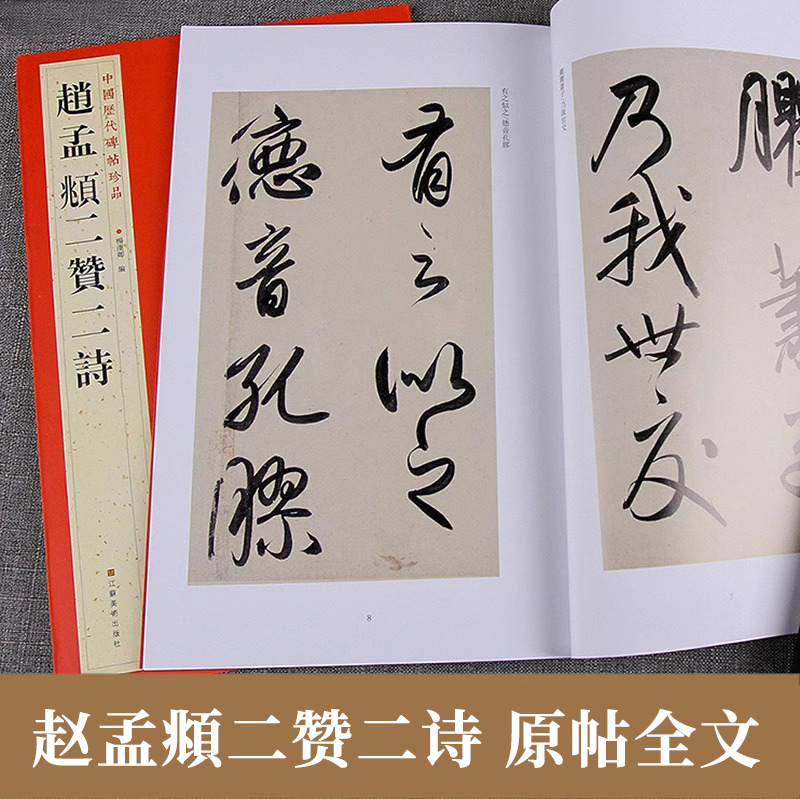 中國歷代碑帖珍品
趙孟頫二贊二詩
楊漢卿 編
江蘇美術出版社
乃我世交
7
有之似之 德音孔膠
有之似之
德音孔膠
8
赵孟頫二赞二诗 原帖全文